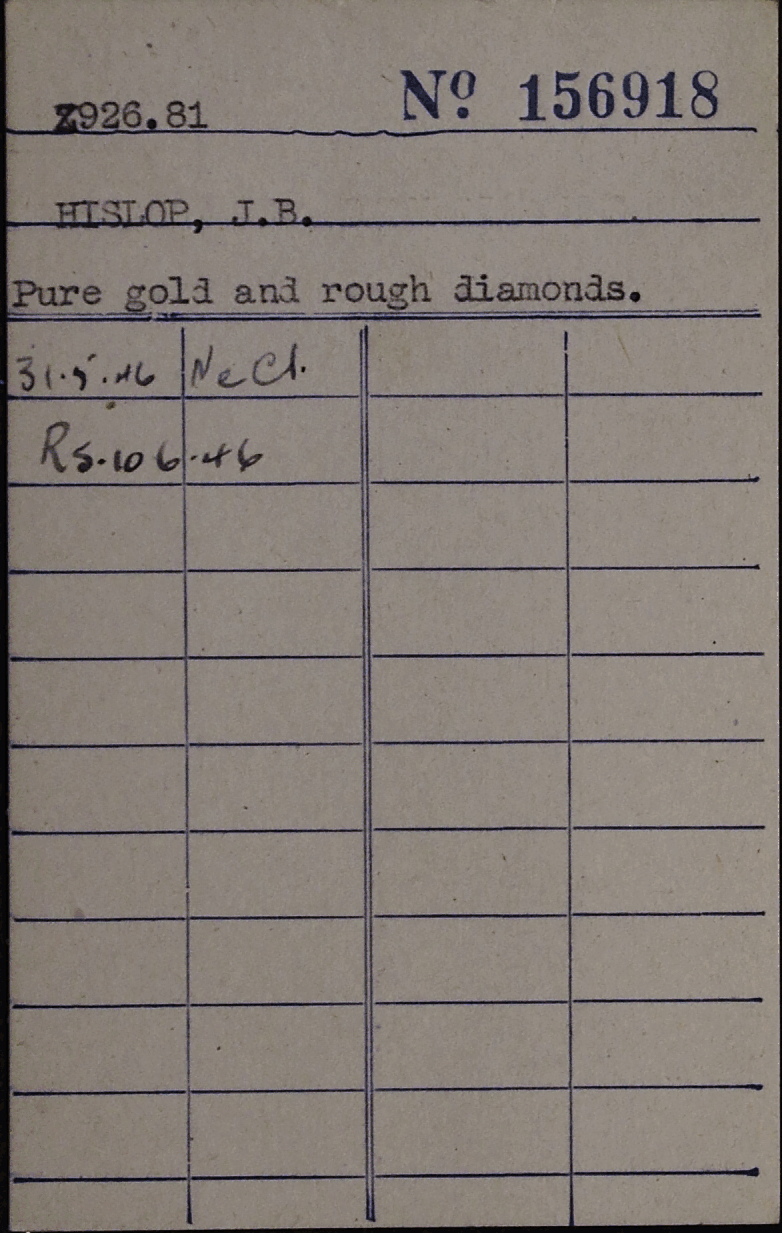 Z926.81 Nº 156918
HISLOP, J.B.
Pure gold and rough diamonds.
31.5.46 Ne Cl.
Rs.106.46